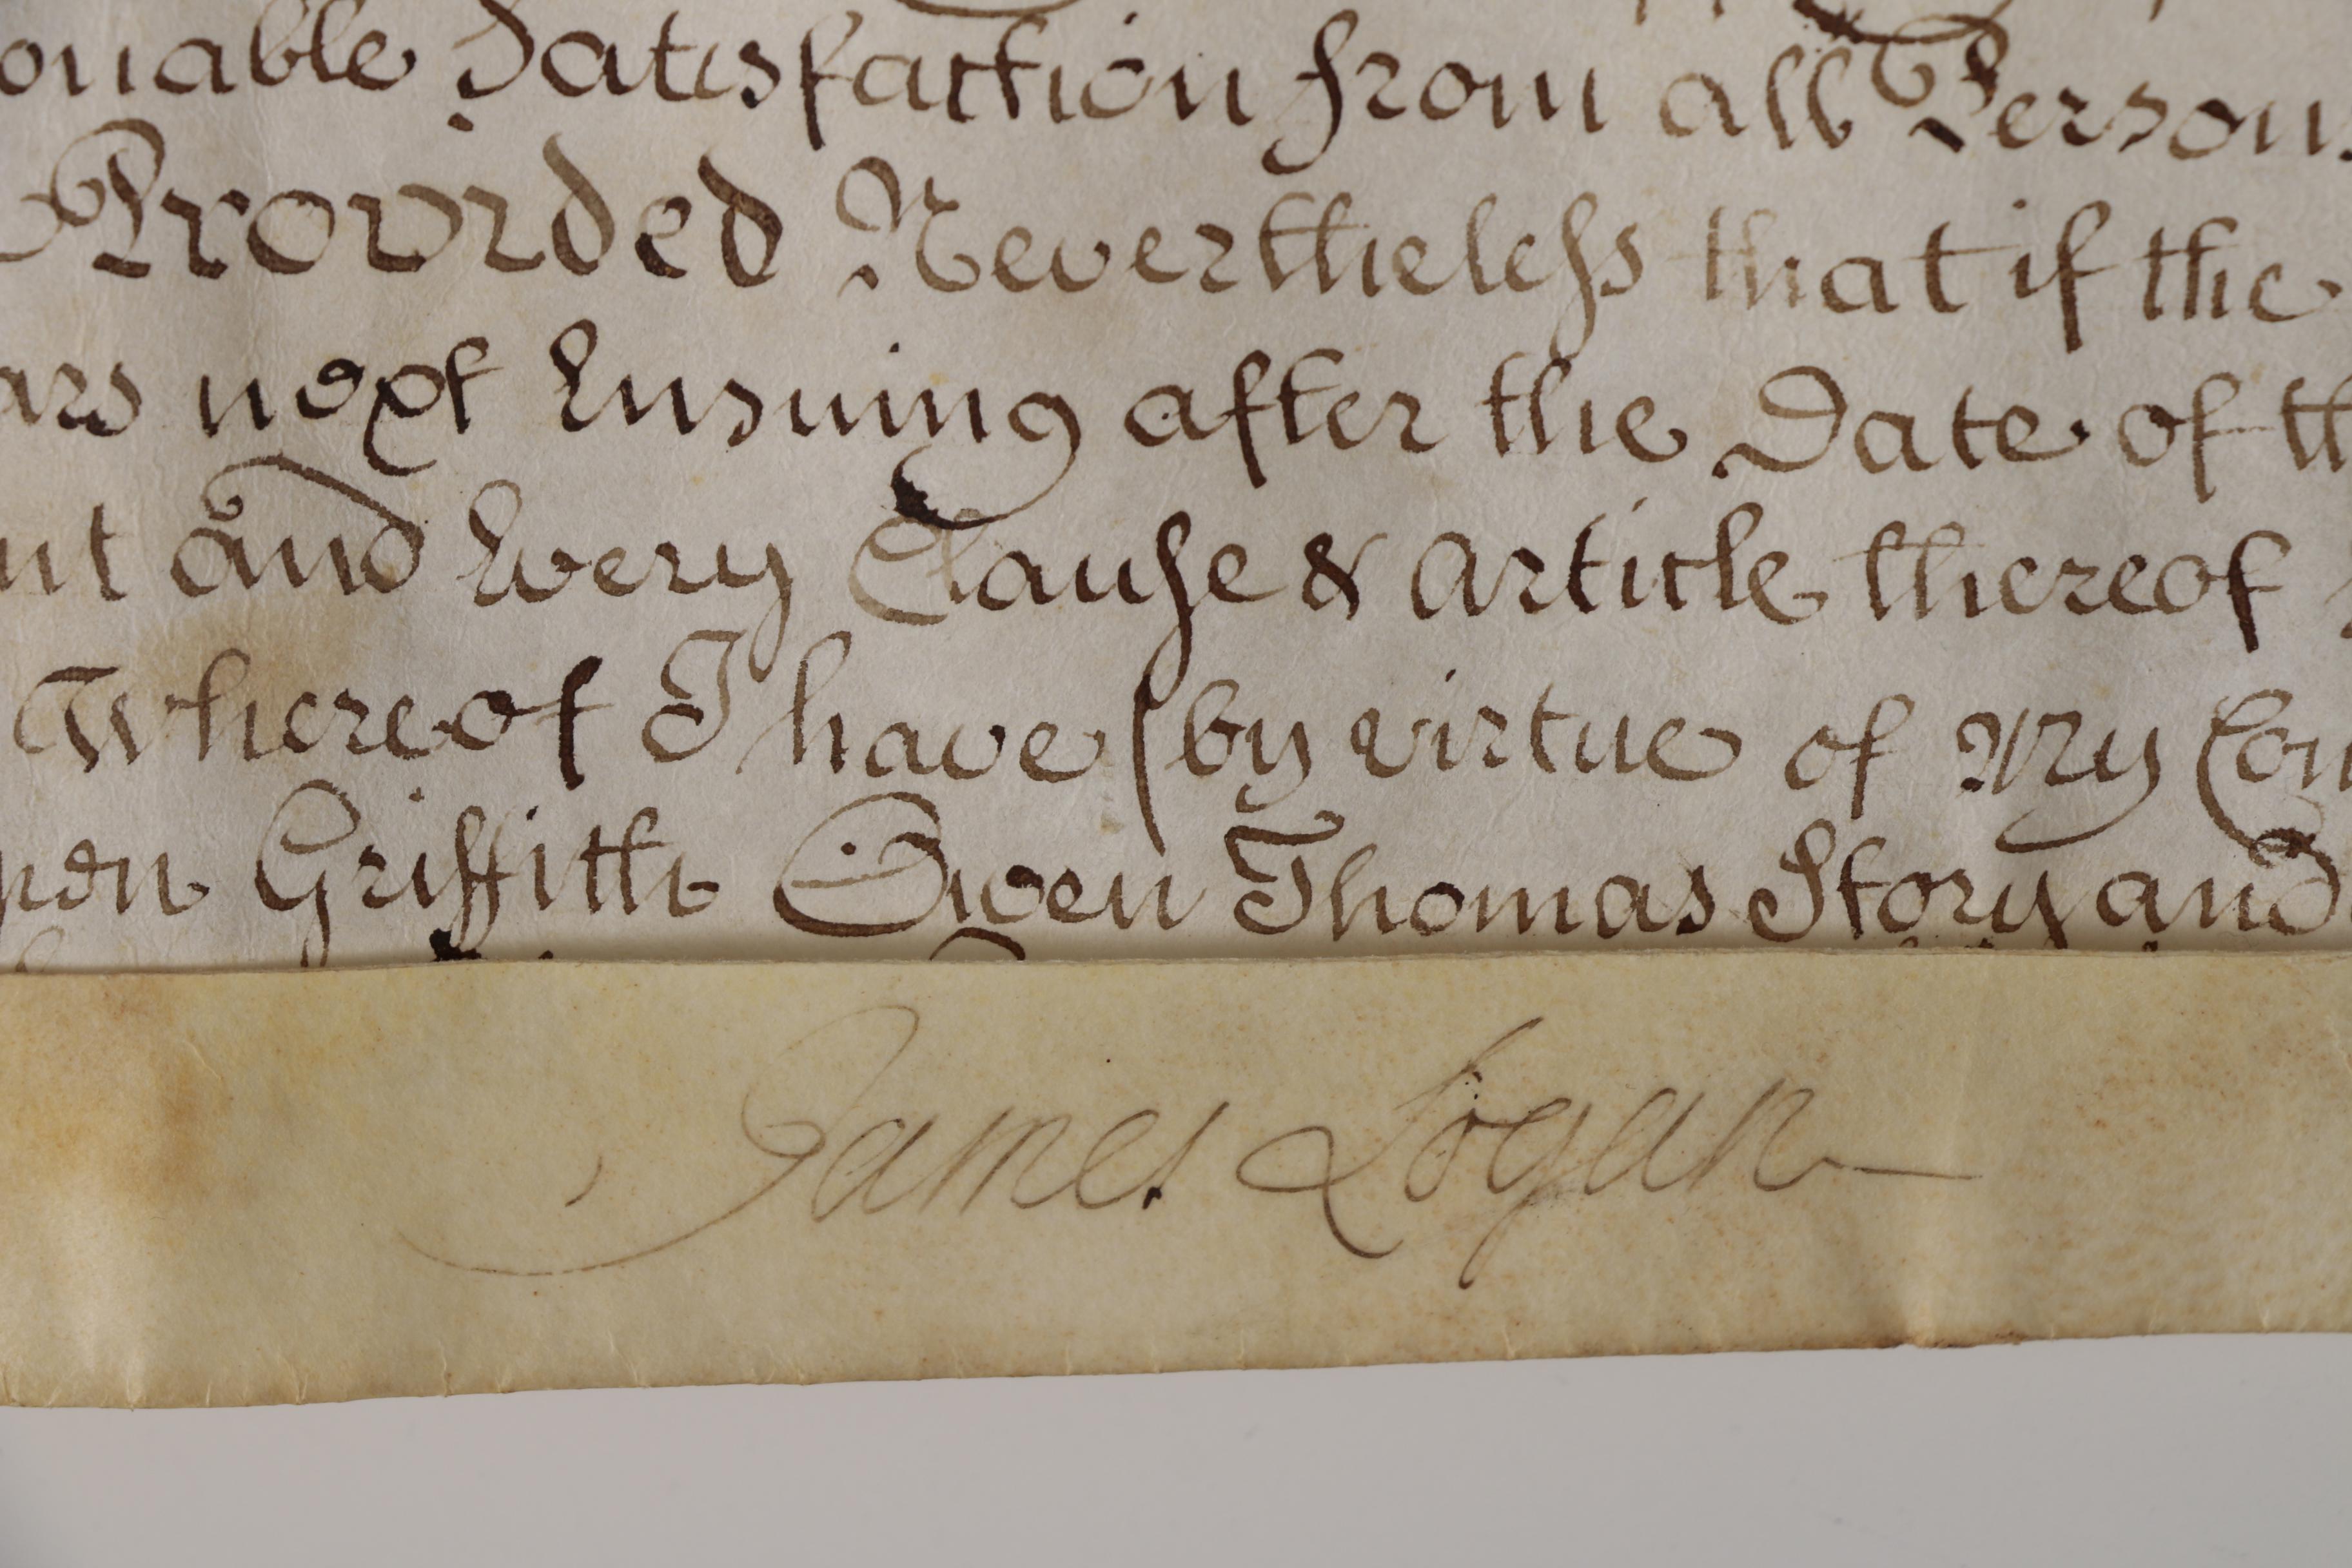 onable Satisfaction from all Persons
Provided Nevertheless that if the
ars next Ensuing after the Date of th
nt and Every Clause & Article thereof
Whereof I have (by virtue of my Com
Griffith Owen Thomas Story and
James Logan